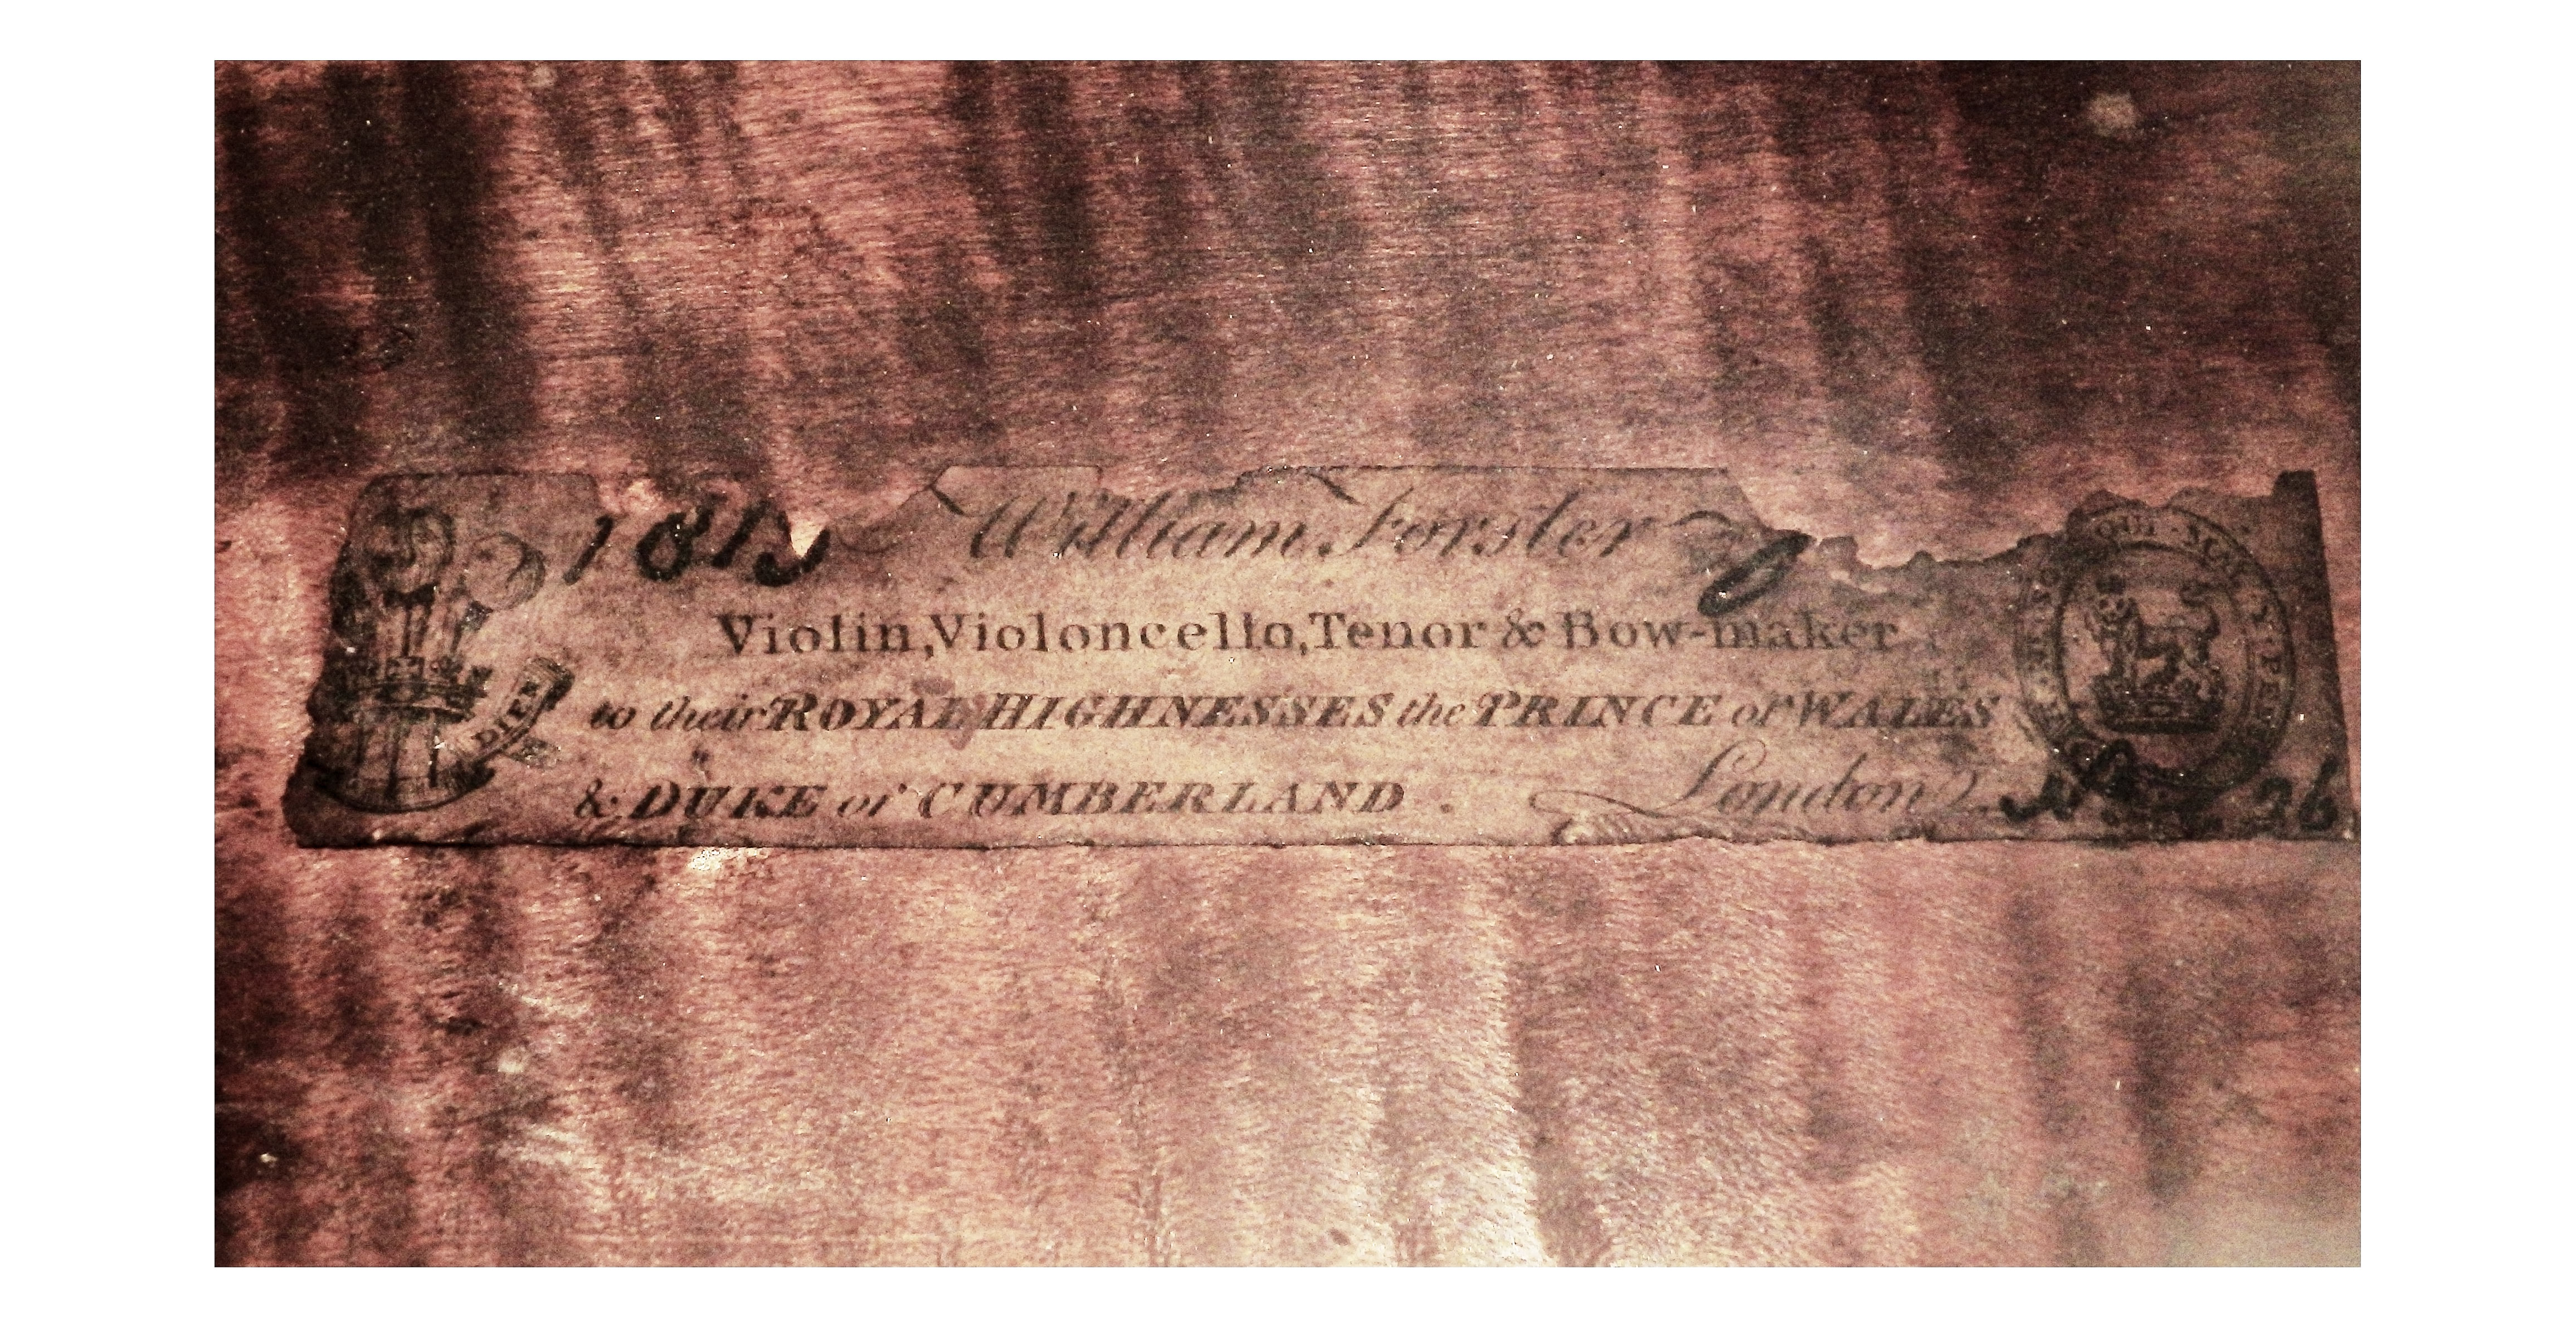 William Forster
Violin, Violoncello, Tenor & Bow-maker
to their ROYAL HIGHNESSES the PRINCE of WALES
& DUKE of CUMBERLAND.
London
DIEN
QUI MAL Y PENSE
26